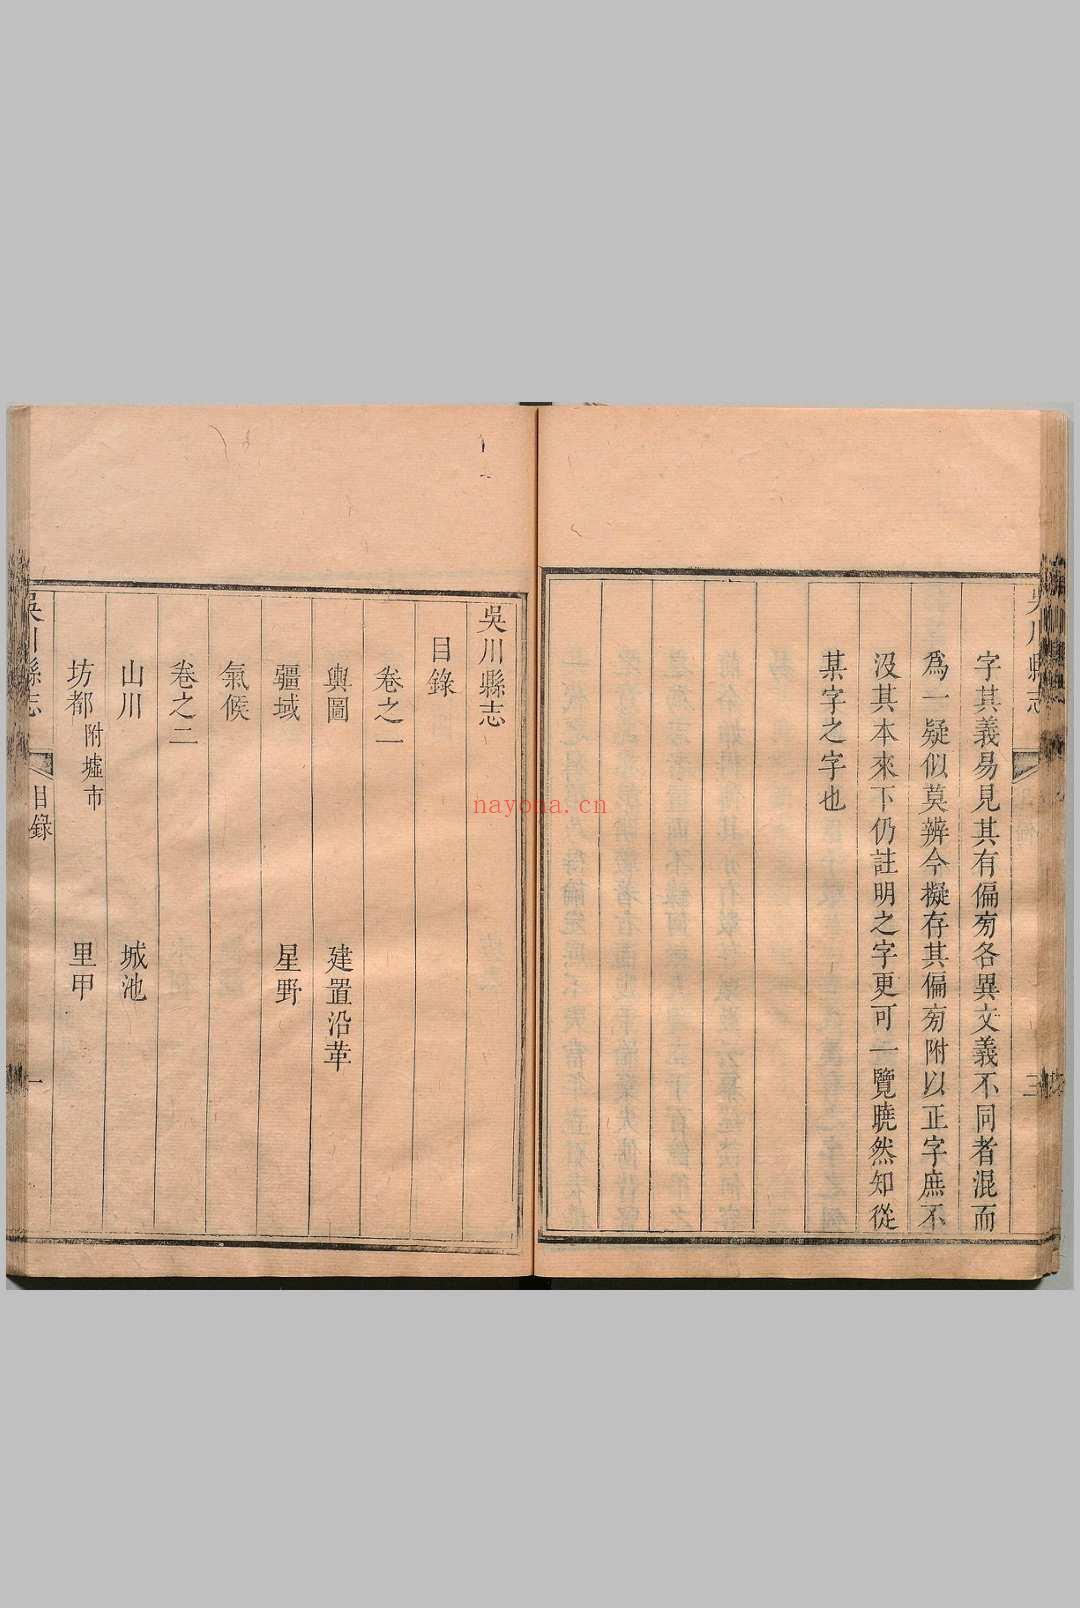 字其義易見其有偏旁各異文義不同者混而
爲一疑似莫辨今擬存其偏旁附以正字庶不
没其本來下仍註明之字更可一覽曉然知從
某字之字也
吳川縣志
三
吳川縣志
目錄
卷之一
輿圖 建置沿革
疆域 星野
氣候
卷之二
山川 城池
坊都附墟市 里甲
吳川縣志 目錄 一
nayona.cn